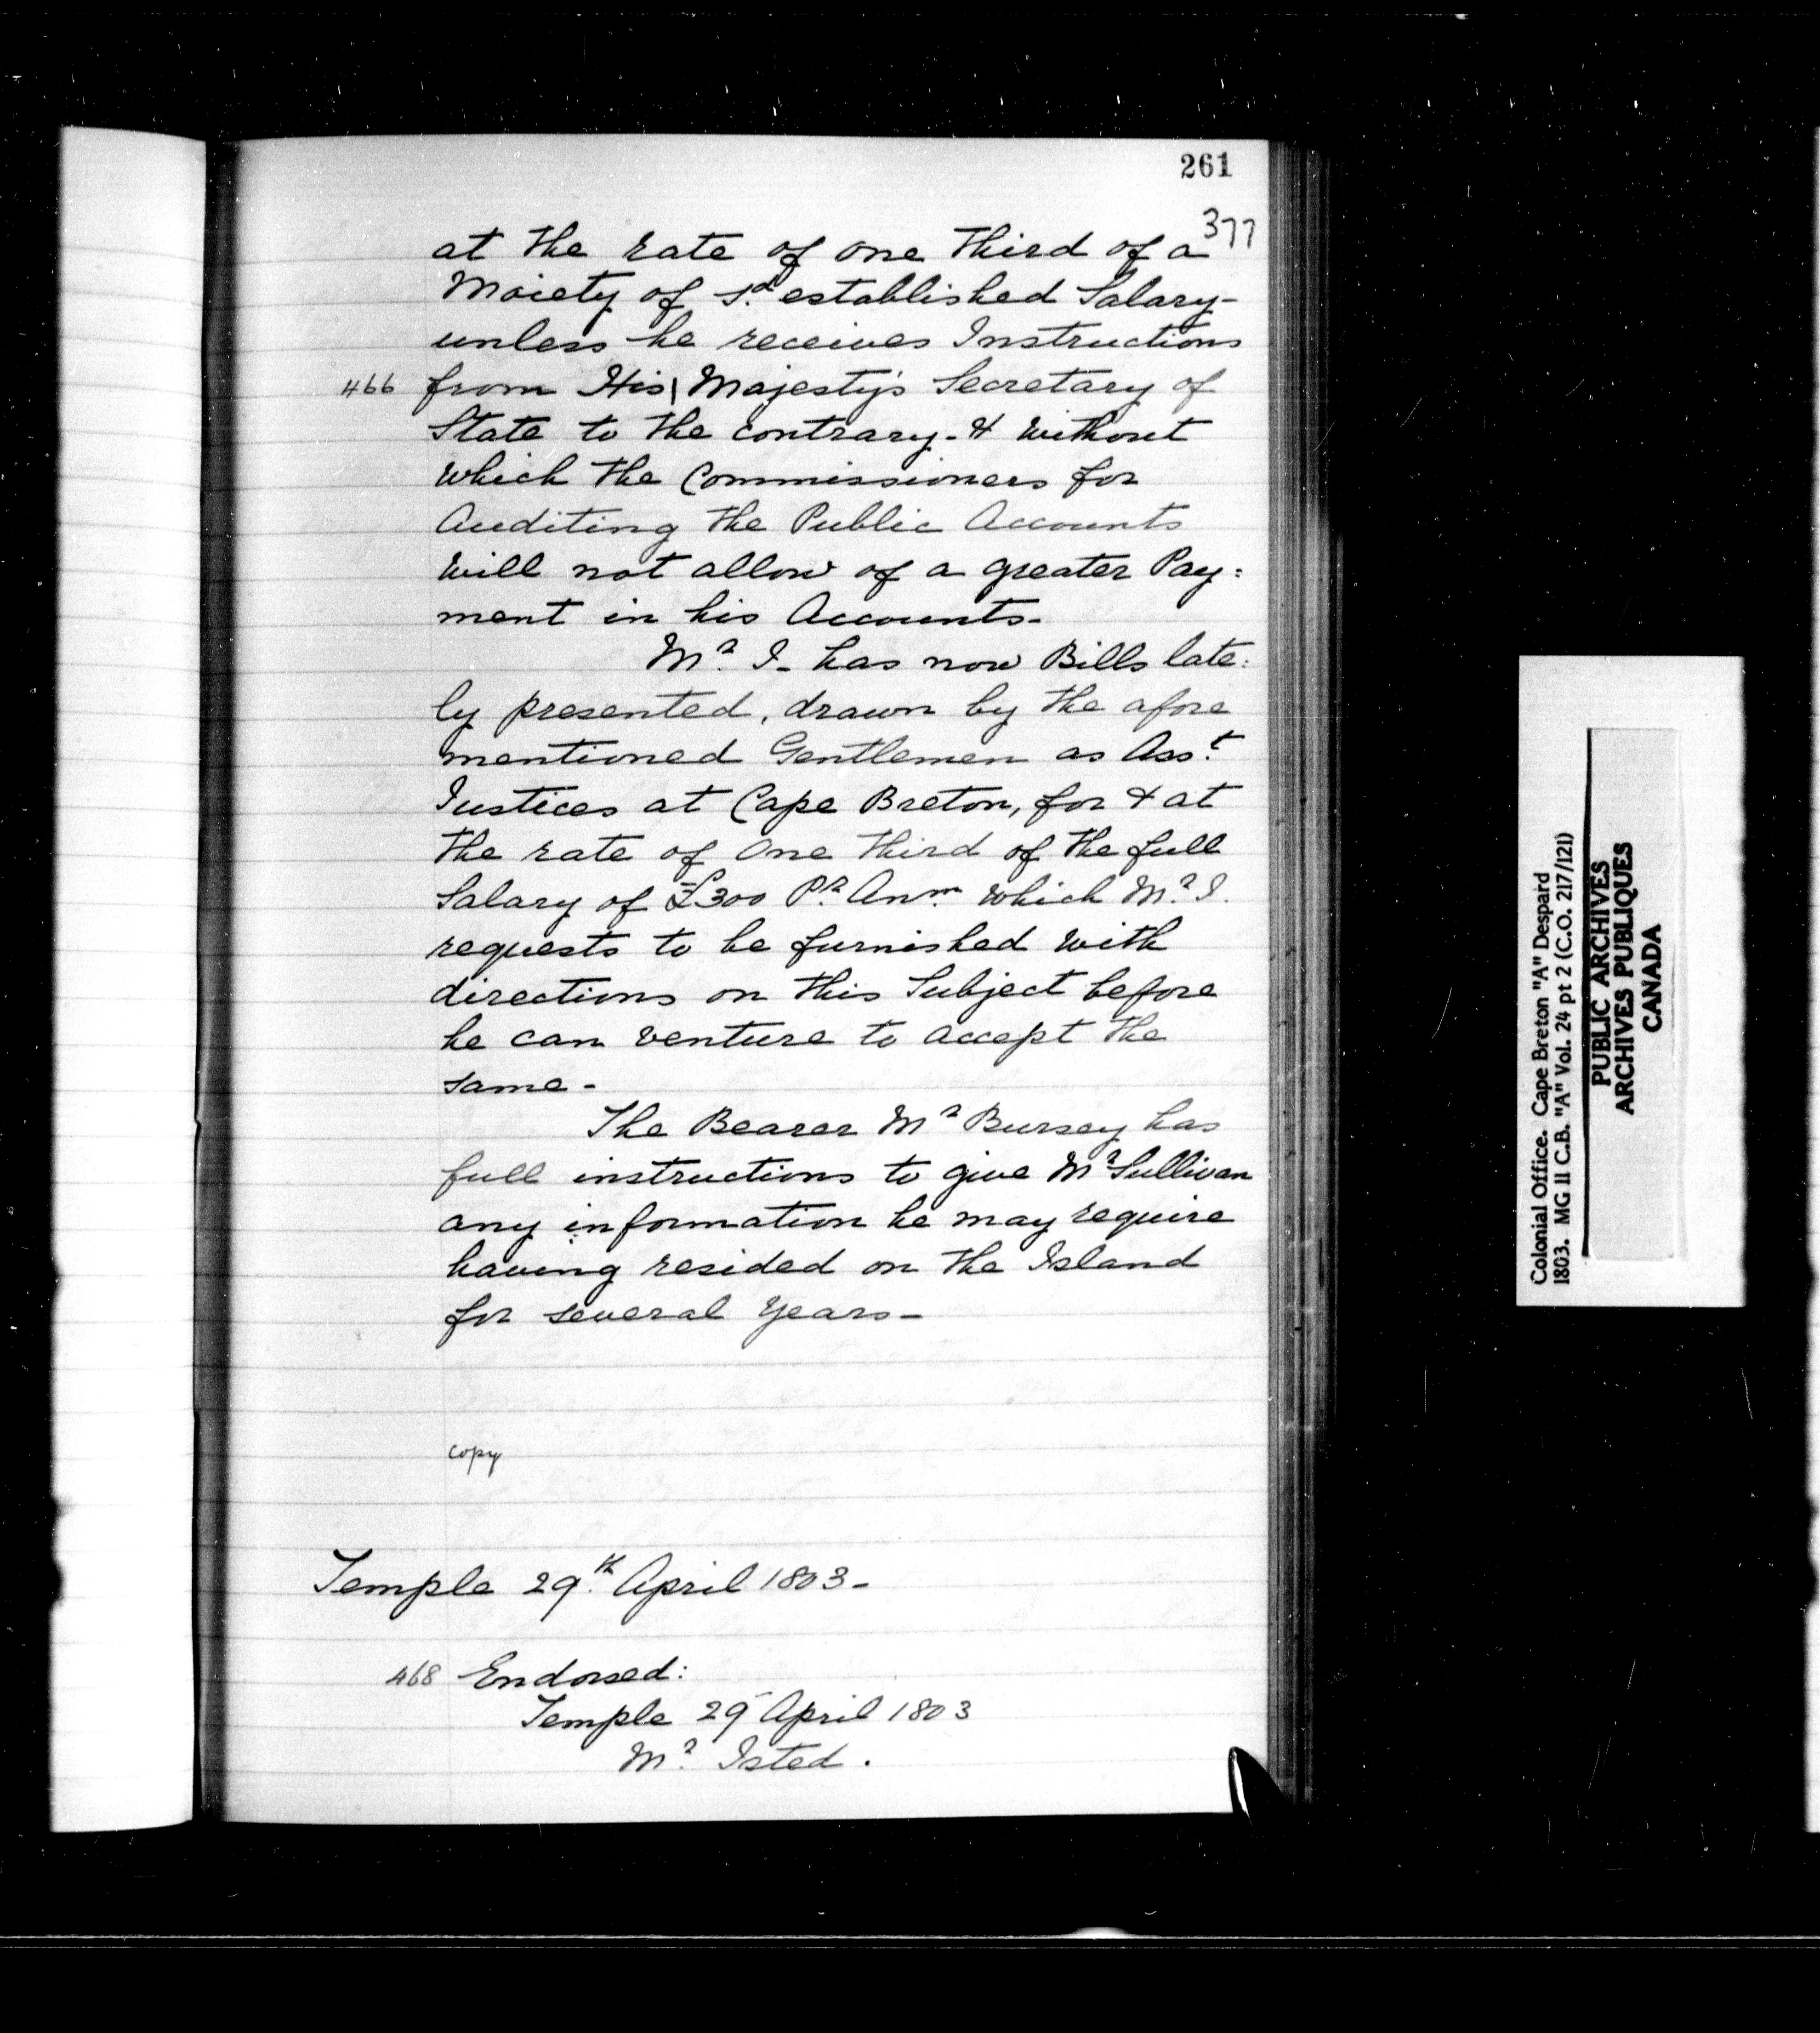 261
377
at the rate of one third of a
Moiety of s.d established Salary-
unless he receives Instructions
466 from His| Majesty's Secretary of
State to the contrary. & without
which the Commissioners for
Auditing the Public Accounts
will not allow of a greater Pay:
ment in his Accounts.
Mr. I- has now Bills late:
ly presented, drawn by the afore
mentioned Gentlemen as Asst.
Justices at Cape Breton, for & at
the rate of One third of the full
Salary of £300 Pr. Anm. which Mr. I.
requests to be furnished with
directions on this Subject before
he can venture to accept the
same -
The Bearer Mr Bursey has
full instructions to give Mr Sullivan
any information he may require
having resided on the Island
for several Years-
copy
Temple 29th. April 1803-
468 Endorsed:
Temple 29 April 1803
Mr. Isted.
Colonial Office. Cape Breton "A" Despard
1803. MG 11 C.B. "A" Vol. 24 pt 2 (C.O. 217/121)
PUBLIC ARCHIVES
ARCHIVES PUBLIQUES
CANADA